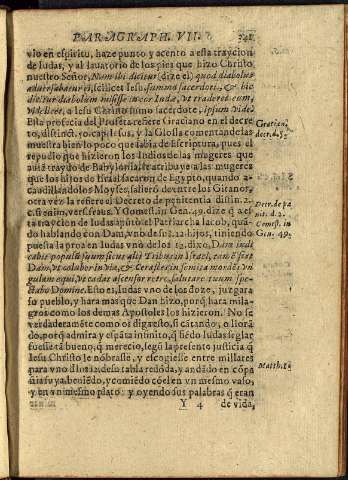 PARAGRAPH. VII. 241
vio en espiritu, haze punto y acento a esta traycion
de Iudas, y al lauatorio de los pies que hizo Christo
nuestro Señor, Nam ibi dicitur (dize el) quod diabolus
aduersabatur ei, scilicet Iesu summo sacerdoti, & hic
dicitur diabolum misisse in cor Iudæ, vt traderet eum,
videlicet, a Iesu Christo sumo sacerdote, ipsum vide.
Esta profecia del Profeta refiere Graciano en el decre
to, distinct. 50. cap. Iesus, y la Glossa comentandolas
muestra bien lo poco que sabia de Escriptura, pues el
repudio que hizieron los Iudios de las mugeres que
auiã traydo de Babylonia, le atribuye a las mugeres
que los hijos de Israel sacaron de Egypto, quando a-
caudillandolos Moyses, salierõ de entre los Gitanos,
otra vez la refiere el Decreto de penitentia distin. 2.
c. si enim, vers. reus. Y Gomestã in Gen. 49. dize q̃ a es
ta traycion de Iudas apũtò el Patriarcha Iacob, quã
do hablando con Dam, vno de sus. 12. hijos, tiniendo
puesta la proa en Iudas vno de los 12. dixo, Dam iudi
cabit populũ suum sicut aliæ Tribus in Israel,
Dam, vt coluber in via, & Cerastes in semita
gulam equi, vt cadat ascensor retro, salutare tuum spe-
ctabo Domine. Esto es, Iudas vno de los doze, juzgara
su pueblo, y hara mas que Dan hizo, porq̃ hara mila-
gros como los demas Apostoles los hizieron. No se
verdaderamẽte como os digaesto, si cãtando, o llorã
do, porq̃ admira y espãta infinito,
fuesse tã bueno, q̃ merecio, segũ la presente justicia q̃
Iesu Christo le nõbrasse, y escogiesse entre millares
para vno d̃ los 12. de su tabla redõda, y andãdo en cõpa
ñia suya beniẽdo, y comiẽdo cõel en vn mesmo vaso,
y en vn mesmo plato: y oyendo sus palabras q̃ eran
Y 4 de vida,
Gratian.
decr. d. 5
Decr. de pæ
nit. d. 2.
Comest. in
Gen. 49.
Matth.